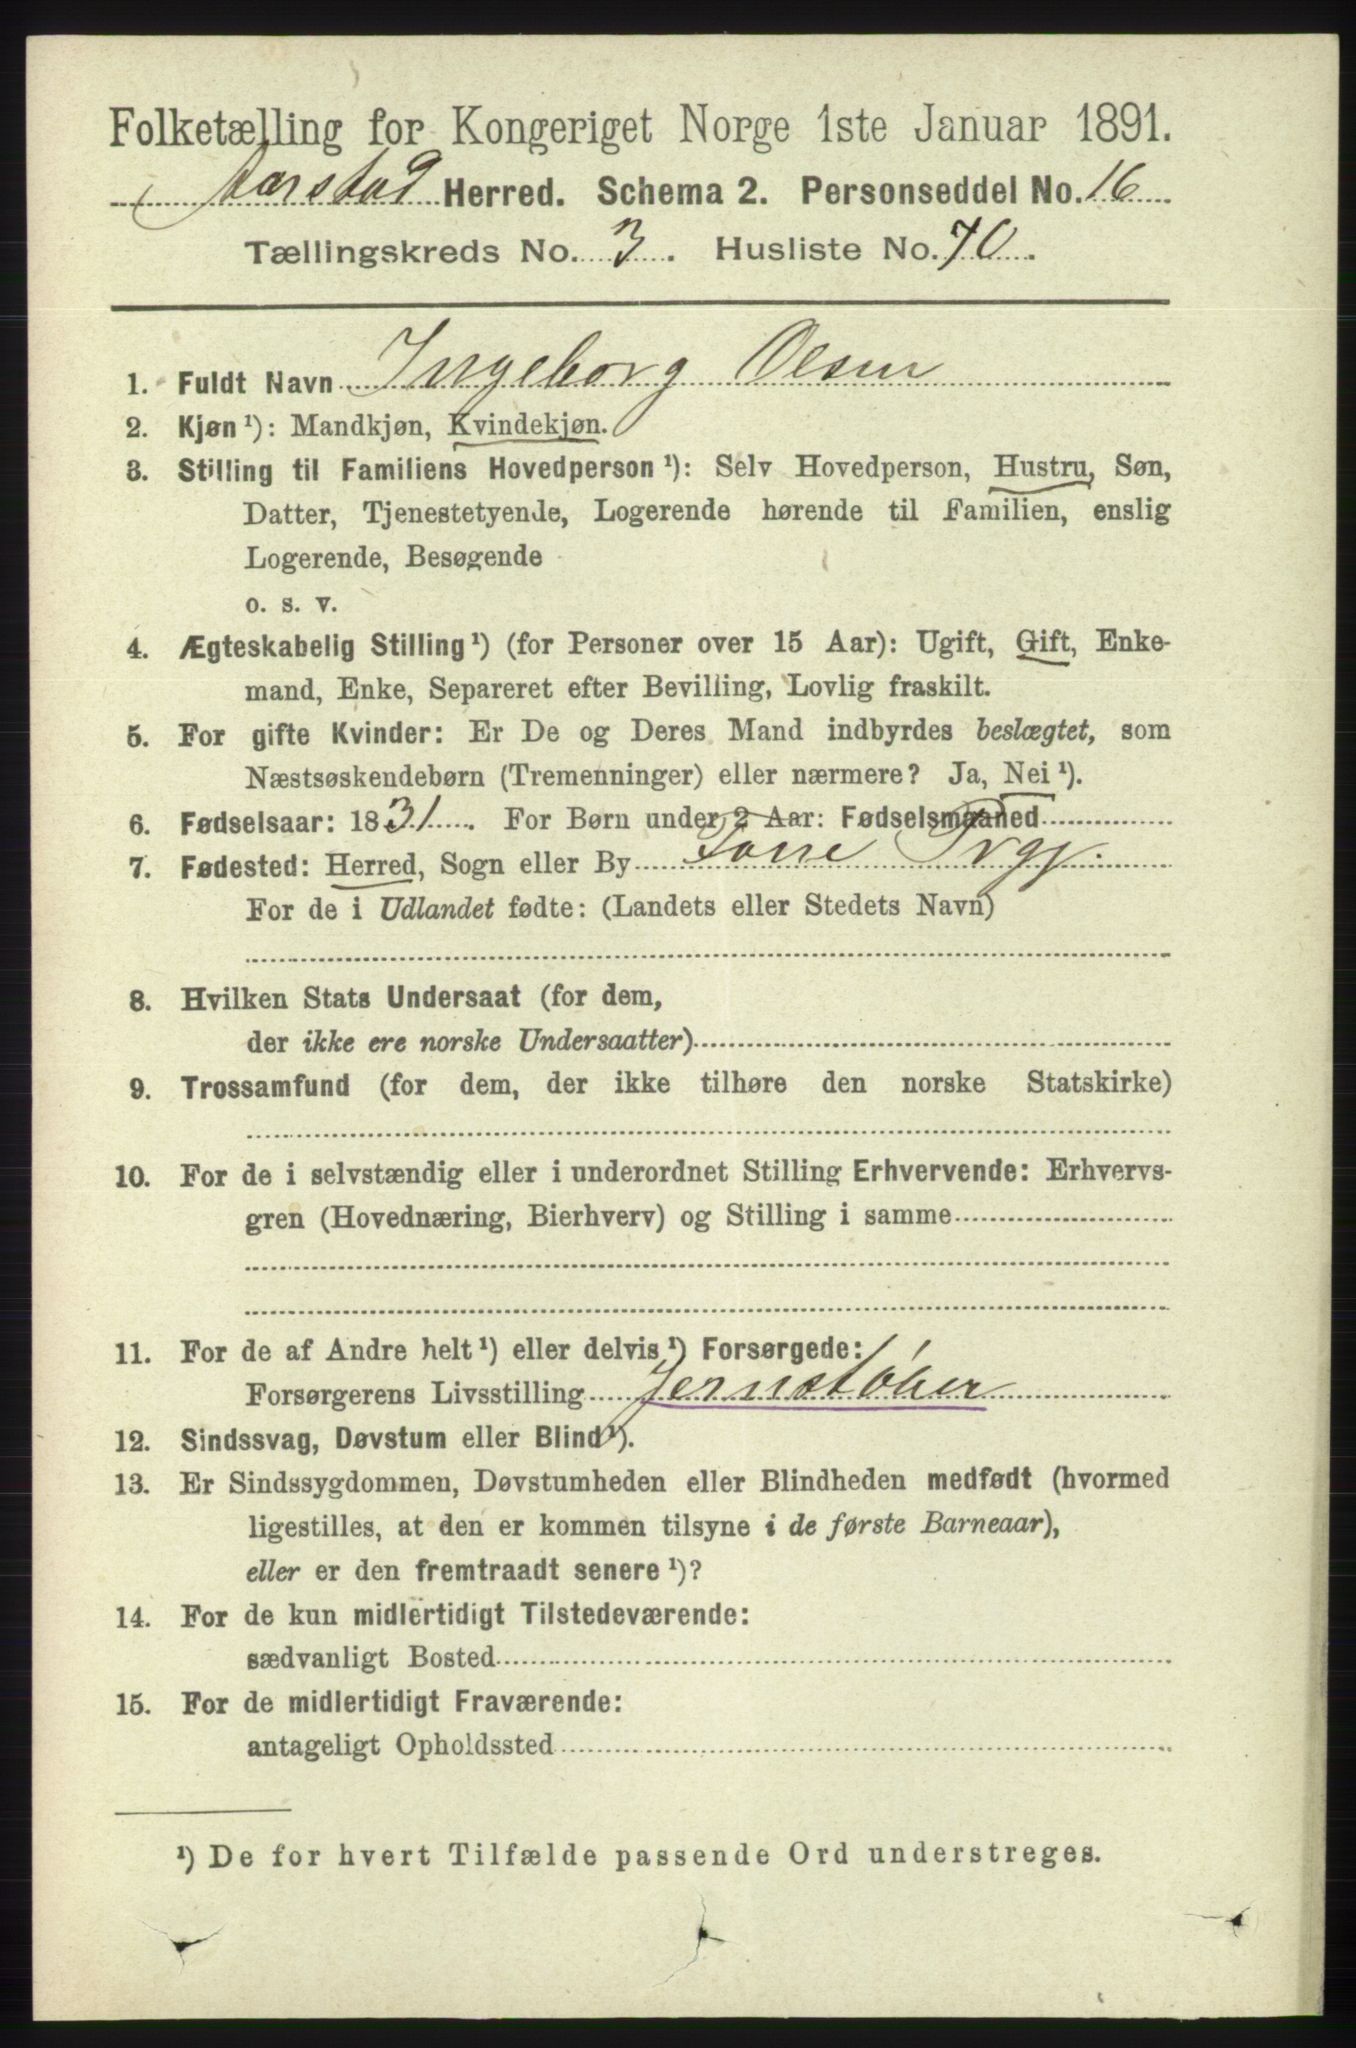 Folketælling for Kongeriget Norge 1ste Januar 1891.
Aarstad Herred. Schema 2. Personseddel No. 16
Tællingskreds No. 3. Husliste No. 70.
1. Fuldt Navn Ingeborg Olsen
2. Kjøn ¹): Mandkjøn, Kvindekjøn.
3. Stilling til Familiens Hovedperson ¹): Selv Hovedperson, Hustru, Søn,
Datter, Tjenestetyende, Logerende hørende til Familien, enslig
Logerende, Besøgende
o. s. v.
4. Ægteskabelig Stilling ¹) (for Personer over 15 Aar): Ugift, Gift, Enke-
mand, Enke, Separeret efter Bevilling, Lovlig fraskilt.
5. For gifte Kvinder: Er De og Deres Mand indbyrdes beslægtet, som
Næstsøskendebørn (Tremenninger) eller nærmere? Ja, Nei ¹).
6. Fødselsaar: 1831. For Børn under 2 Aar: Fødselsmaaned
7. Fødested: Herred, Sogn eller By Fosse
For de i Udlandet fødte: (Landets eller Stedets Navn)
8. Hvilken Stats Undersaat (for dem,
der ikke ere norske Undersaatter)
9. Trossamfund (for dem, der ikke tilhøre den norske Statskirke)
10. For de i selvstændig eller i underordnet Stilling Erhvervende: Erhvervs-
gren (Hovednæring, Bierhverv) og Stilling i samme
11. For de af Andre helt ¹) eller delvis ¹) Forsørgede:
Forsørgerens Livsstilling Jernstøber
12. Sindssvag, Døvstum eller Blind ¹).
13. Er Sindssygdommen, Døvstumheden eller Blindheden medfødt (hvormed
ligestilles, at den er kommen tilsyne i de første Barneaar),
eller er den fremtraadt senere ¹)?
14. For de kun midlertidigt Tilstedeværende:
sædvanligt Bosted
15. For de midlertidigt Fraværende:
antageligt Opholdssted
¹) De for hvert Tilfælde passende Ord understreges.